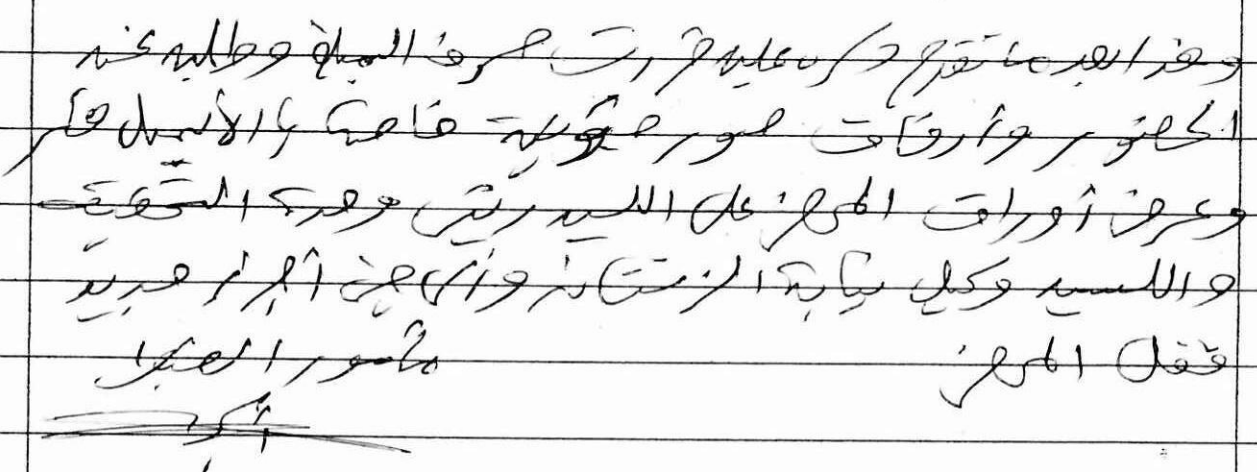 وهذا بعد ما تقدم ذكره عليه قررت صرف المبلغ وطلبه عند
الحضور وأرفاق صور ضوئية خاصة
وعرض أوراق المحضر على السيد رئيس وحدة التحقيق
والسيد وكيل نيابة الزنتان وأي جزء أجراء جديد
قفل المحضر
مأمور الضبط